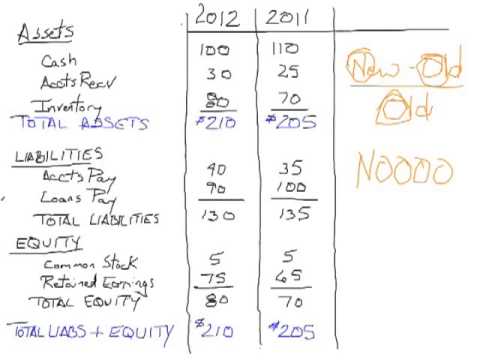 2012 2011
Assets
Cash 100 110
Accts Recv 30 25
Inventory 80 70
TOTAL ASSETS $210 $205
LIABILITIES
Accts Pay 40 35
Loans Pay 90 100
TOTAL LIABILITIES 130 135
EQUITY
Common Stock 5 5
Retained Earnings 75 65
TOTAL EQUITY 80 70
TOTAL LIABS + EQUITY $210 $205
New - Old
Old
NOOOO